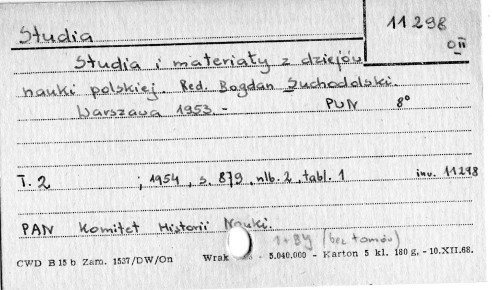 Studia
11298
OII
Studia i materiały z dziejów
nauki polskiej. Red. Bogdan Suchodolski.
Warszawa 1953.- PWN 8°
T. 2 ; 1954, s. 879, nlb. 2, tabl. 1 inw. 11298
PAN Komitet Historii Nauki.
(bez tomów)
CWD B 15 b Zam. 1537/DW/On Wrak 5.040.000 - Karton 5 kl. 180 g. - 10.XII.68.